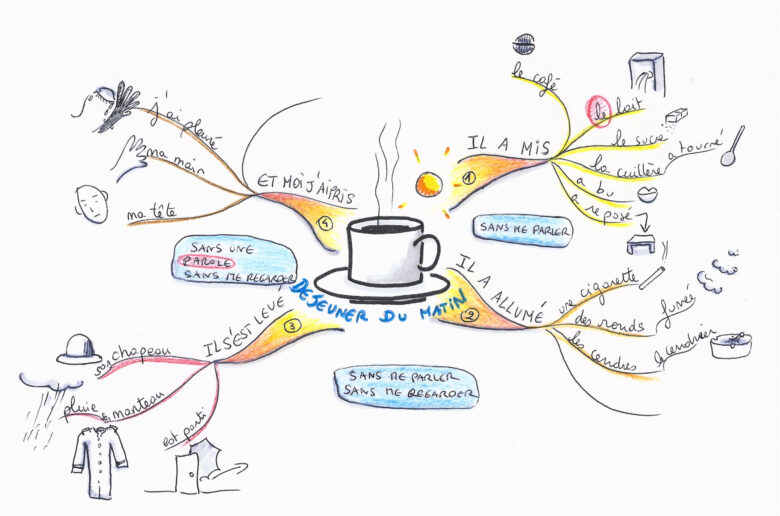 DEJEUNER DU MATIN
1
IL A MIS
le café
le lait
le sucre
la cuillère
a tourné
a bu
a reposé
SANS ME PARLER
2
IL A ALLUMÉ
une cigarette
des ronds
fumée
les cendres
le cendrier
SANS ME PARLER
SANS ME REGARDER
3
IL S'EST LEVE
son chapeau
manteau
pluie
est parti
SANS UNE
PAROLE
SANS ME REGARDER
4
ET MOI J'AI PRIS
ma tête
ma main
j'ai pleuré